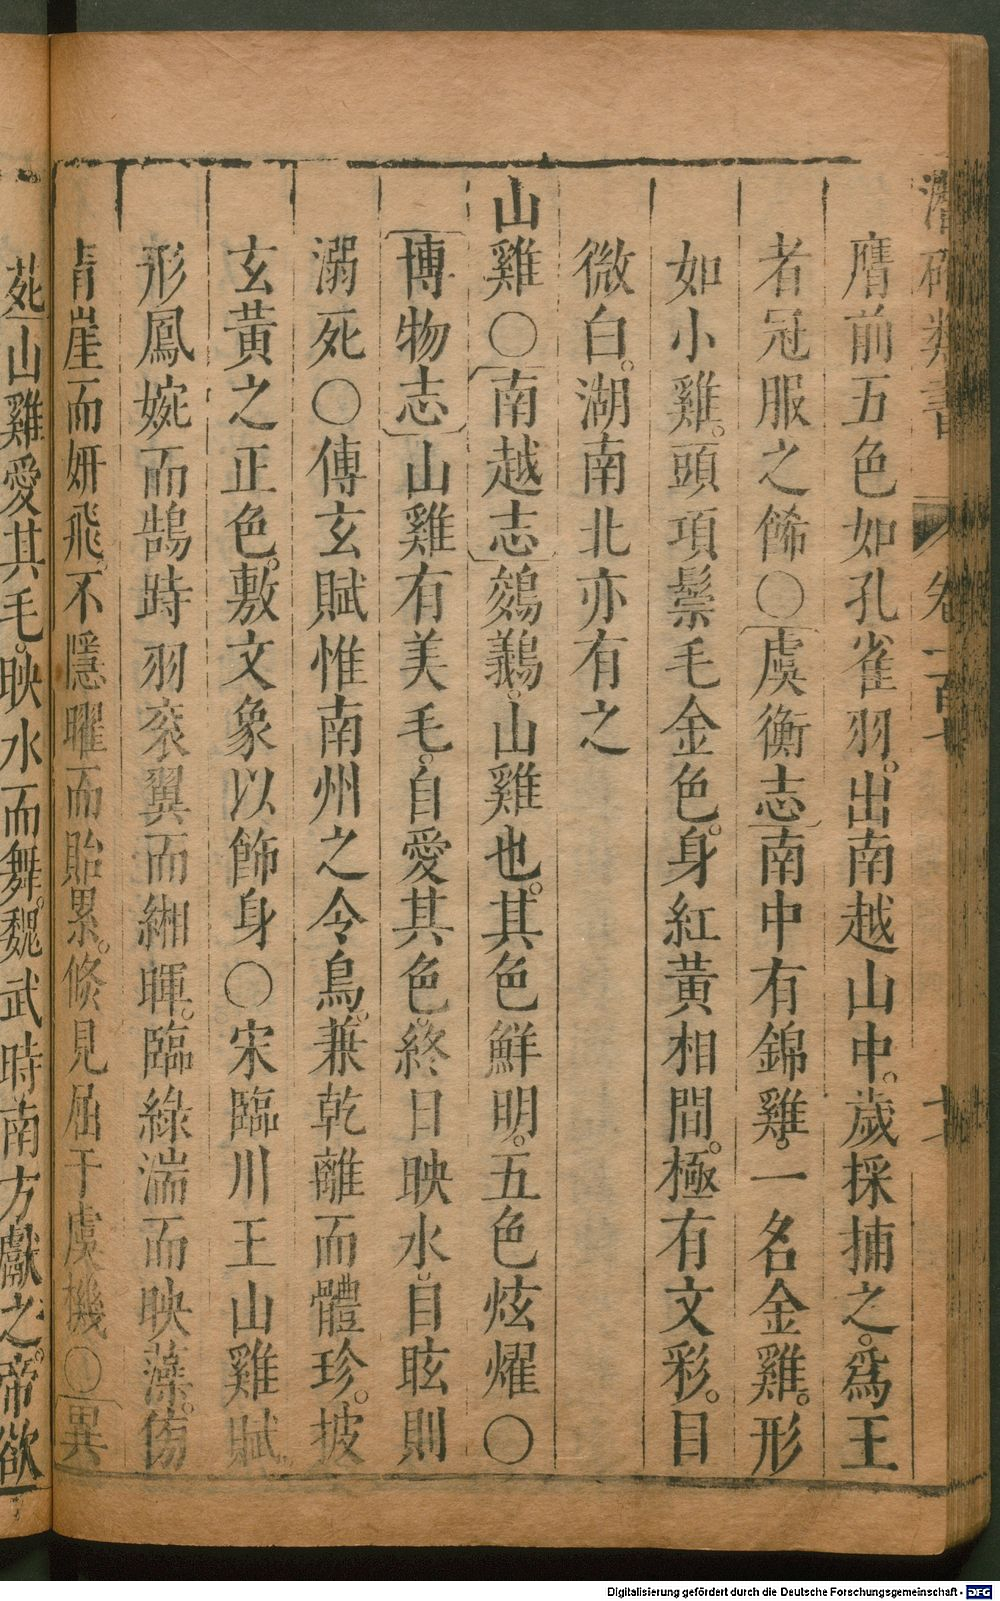 潛確類書 卷一百七 十七
膺前五色如孔雀羽。出南越山中。歲採捕之。爲王
者冠服之飾〇虞衡志南中有錦雞。一名金雞。形
如小雞。頭項鬃毛金色。身紅黃相間。極有文彩。目
微白。湖南北亦有之
山雞〇南越志鵕鸃。山雞也。其色鮮明。五色炫燿〇
博物志山雞有美毛。自愛其色終日映水。自眩則
溺死〇傅玄賦惟南州之令鳥。兼乾離而體珍。披
玄黃之正色。敷文象以飾身〇宋臨川王山雞賦
形鳳婉而鵠跱羽衮翼而緗暉。臨綠湍而映藻。傍
青崖而妍飛。不隱曜而貽累。倏見屈于虞機〇異
苑山雞愛其毛。映水而舞。魏武時南方獻之。帝欲
Digitalisierung gefördert durch die Deutsche Forschungsgemeinschaft - DFG